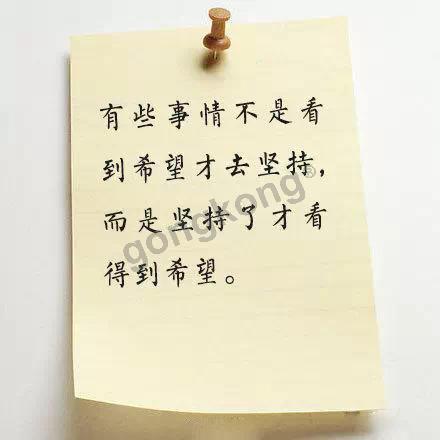 有些事情不是看
到希望才去坚持，
而是坚持了才看
得到希望。
gongkong®